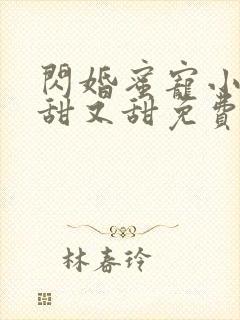 閃婚蜜寵小
甜又甜免費
林春玲